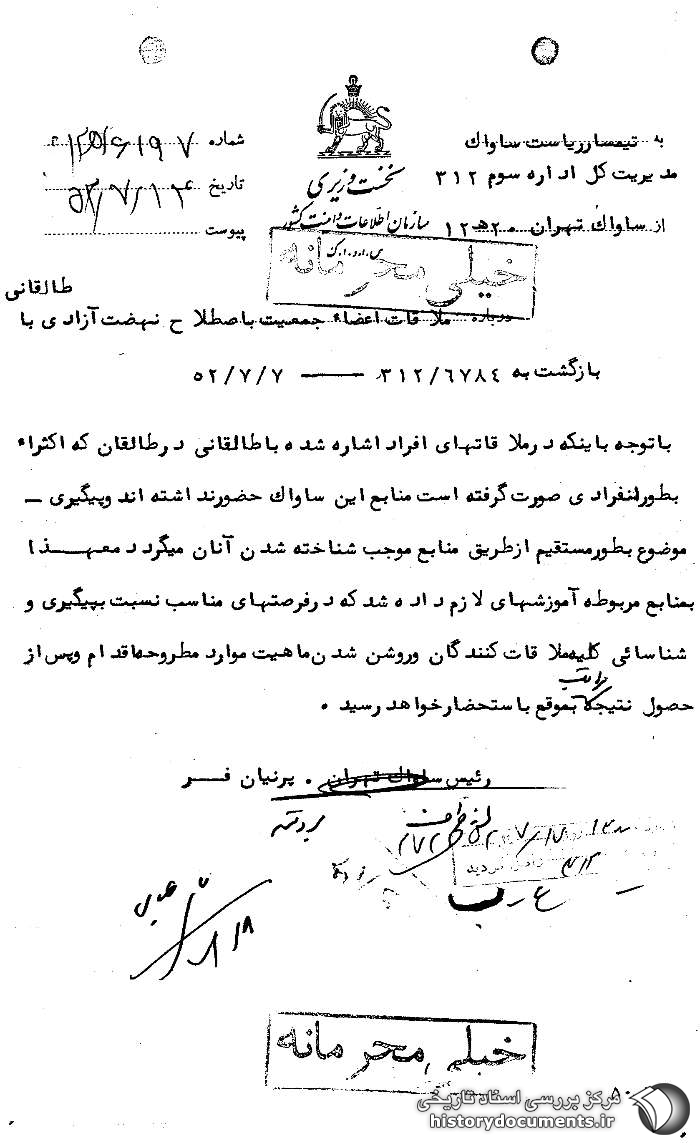 به تیمسار ریاست ساواك
مدیریت کل اداره سوم ۳۱۲
از ساواك تهران ۲۰ ه ۱۲
نخست وزیری
سازمان اطلاعات و امنیت کشور
س.ا.و.ا.ك
شماره
تاریخ ۵۲/۷/۱۴
پیوست
خیلی محرمانه
درباره ملاقات اعضاء جمعیت باصطلاح نهضت آزادی با طالقانی
بازگشت به ۳۱۲/۶۷۸۴ ــــ ۵۲/۷/۷
باتوجه باینکه درملاقاتهای افراد اشاره شده باطالقانی درطالقان که اکثراء
بطورانفرادی صورت گرفته است منابع این ساواك حضورنداشته اند وپیگیری ــ
موضوع بطورمستقیم ازطریق منابع موجب شناخته شدن آنان میگردد معهـــذا
بمنابع مربوطه آموزشهای لازم داده شد که درفرصتهای مناسب نسبت بپیگیری و
شناسائی کلیه ملاقات کنندگان وروشن شدن ماهیت موارد مطروحه اقدام وپس از
حصول نتیجه مراتب بموقع باستحضارخواهد رسید ۰
رئیس ساواك تهران ۰ پرنیان فـــر
خیلی محرمانه
مرکز بررسی اسناد تاریخی
historydocuments.ir